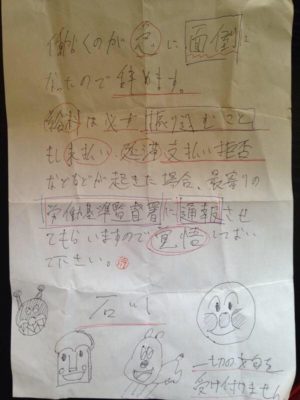 働くのが急に面倒に
なったので辞めます。
給料は必ず振り込むこと
もし未払い・延滞・支払い拒否
などなどが起きた場合、最寄りの
労働基準監督署に通報させ
てもらいますので覚悟しておい
て下さい。
一切の文句を
受け付けません